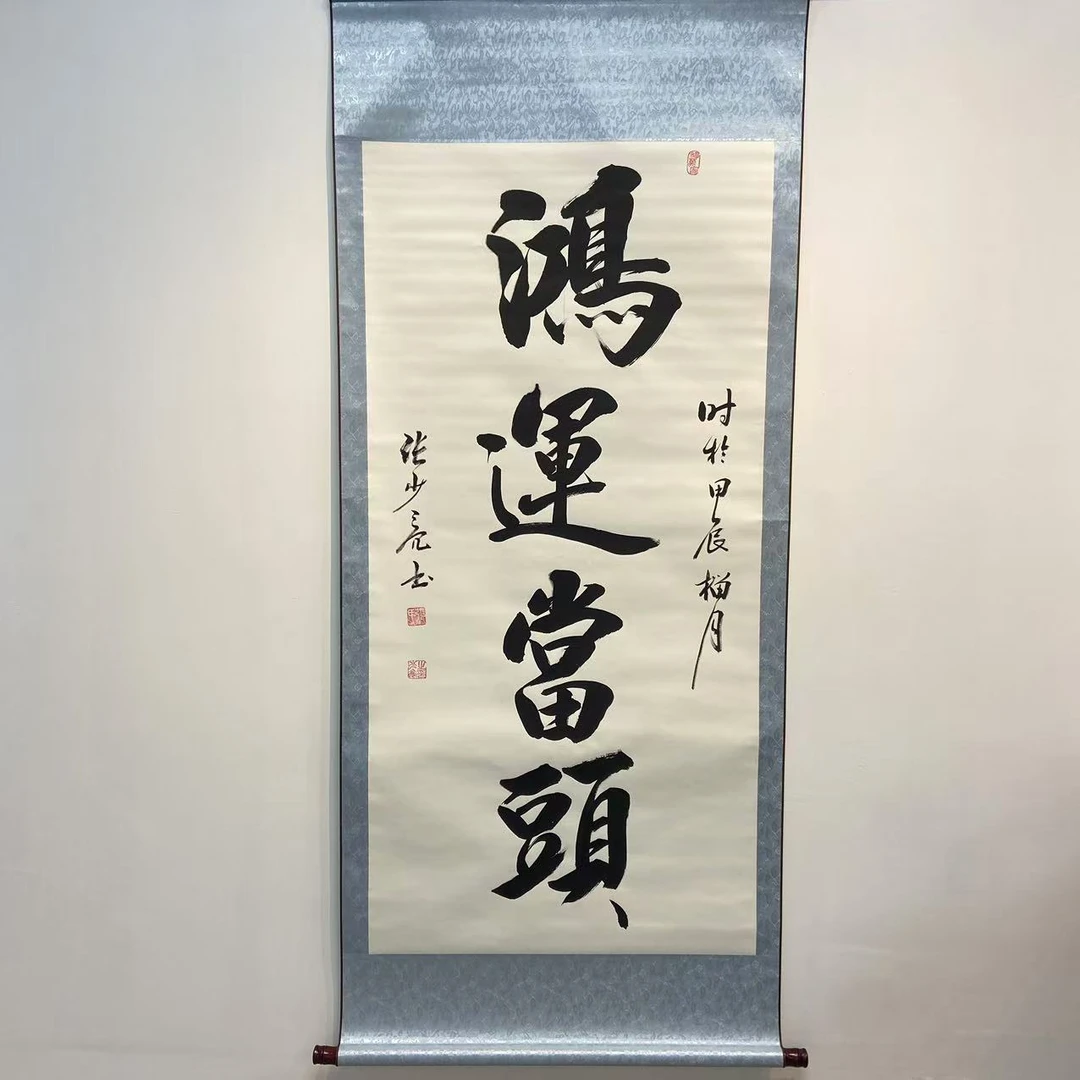 时於甲辰榴月
鴻運當頭
张少亮书